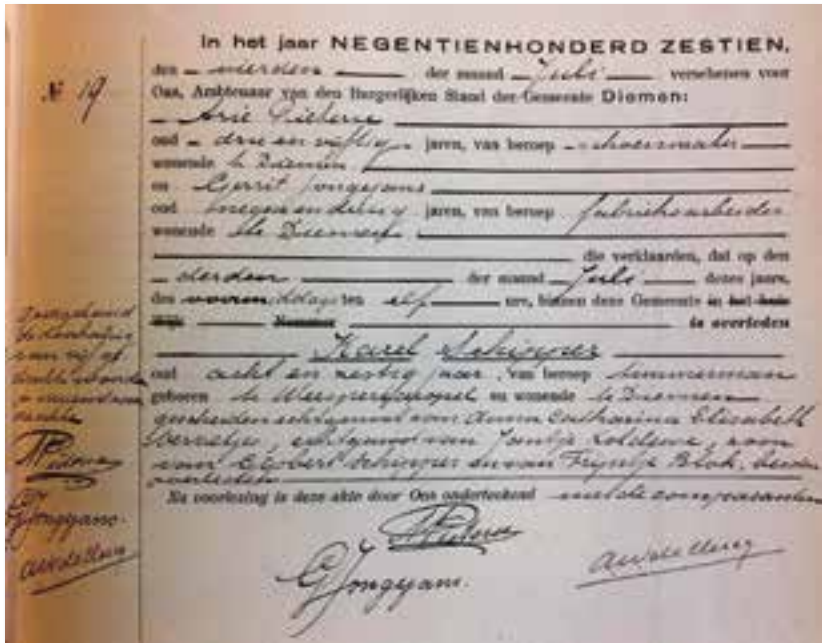 In het jaar NEGENTIENHONDERD ZESTIEN,
den vierden der maand Juli verschenen voor
Ons, Ambtenaar van den Burgerlijken Stand der Gemeente Diemen:
№ 19
Arie
oud drie en vijftig jaren, van beroep schoenmaker
wonende te Diemen
en Gerrit Jongejans
oud negen en dertig jaren, van beroep fabrieksarbeider
wonende te Diemen
die verklaarden, dat op den
derden der maand Juli dezes jaars,
des voormiddags ten elf ure, binnen deze Gemeente in het huis
Wijk Nommer is overleden
Karel Schipper
oud acht en zestig jaar, van beroep timmerman
geboren te Weesperkarspel en wonende te Diemen
gescheiden echtgenoot van Anna Catharina Elisabeth
echtgenoot van Jontje zoon
van Egbert Schipper en van Fijntje Blok, beiden
overleden
Na voorlezing is deze akte door Ons onderteekend met de comparanten
Goedgekeurd
de doorhaling
van vijf
gedrukte woorden
G Jongejans.
G Jongejans.